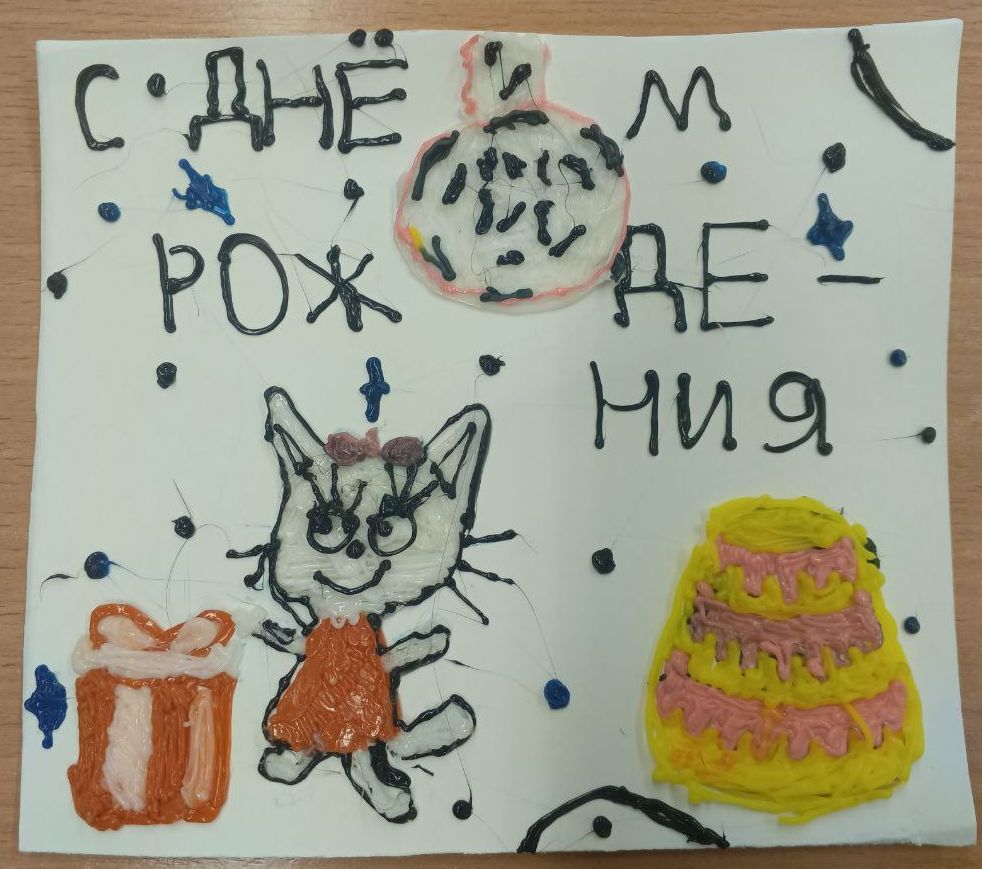 С ДНЁМ
РОЖДЕ-
НИЯ